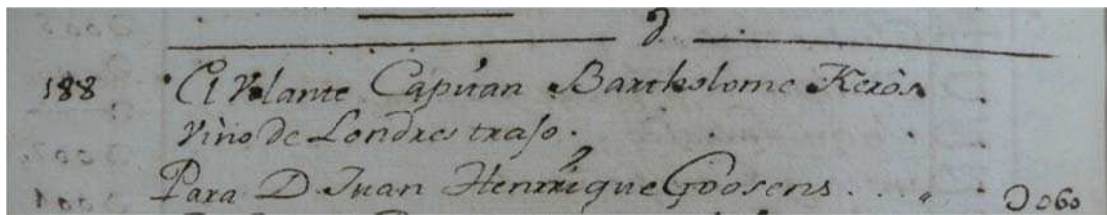 d
188 El Volante Capitan Bartholome Keròs
Vino de Londres trajo.
Para D Juan Henrrique Goosens . . . . . 0060